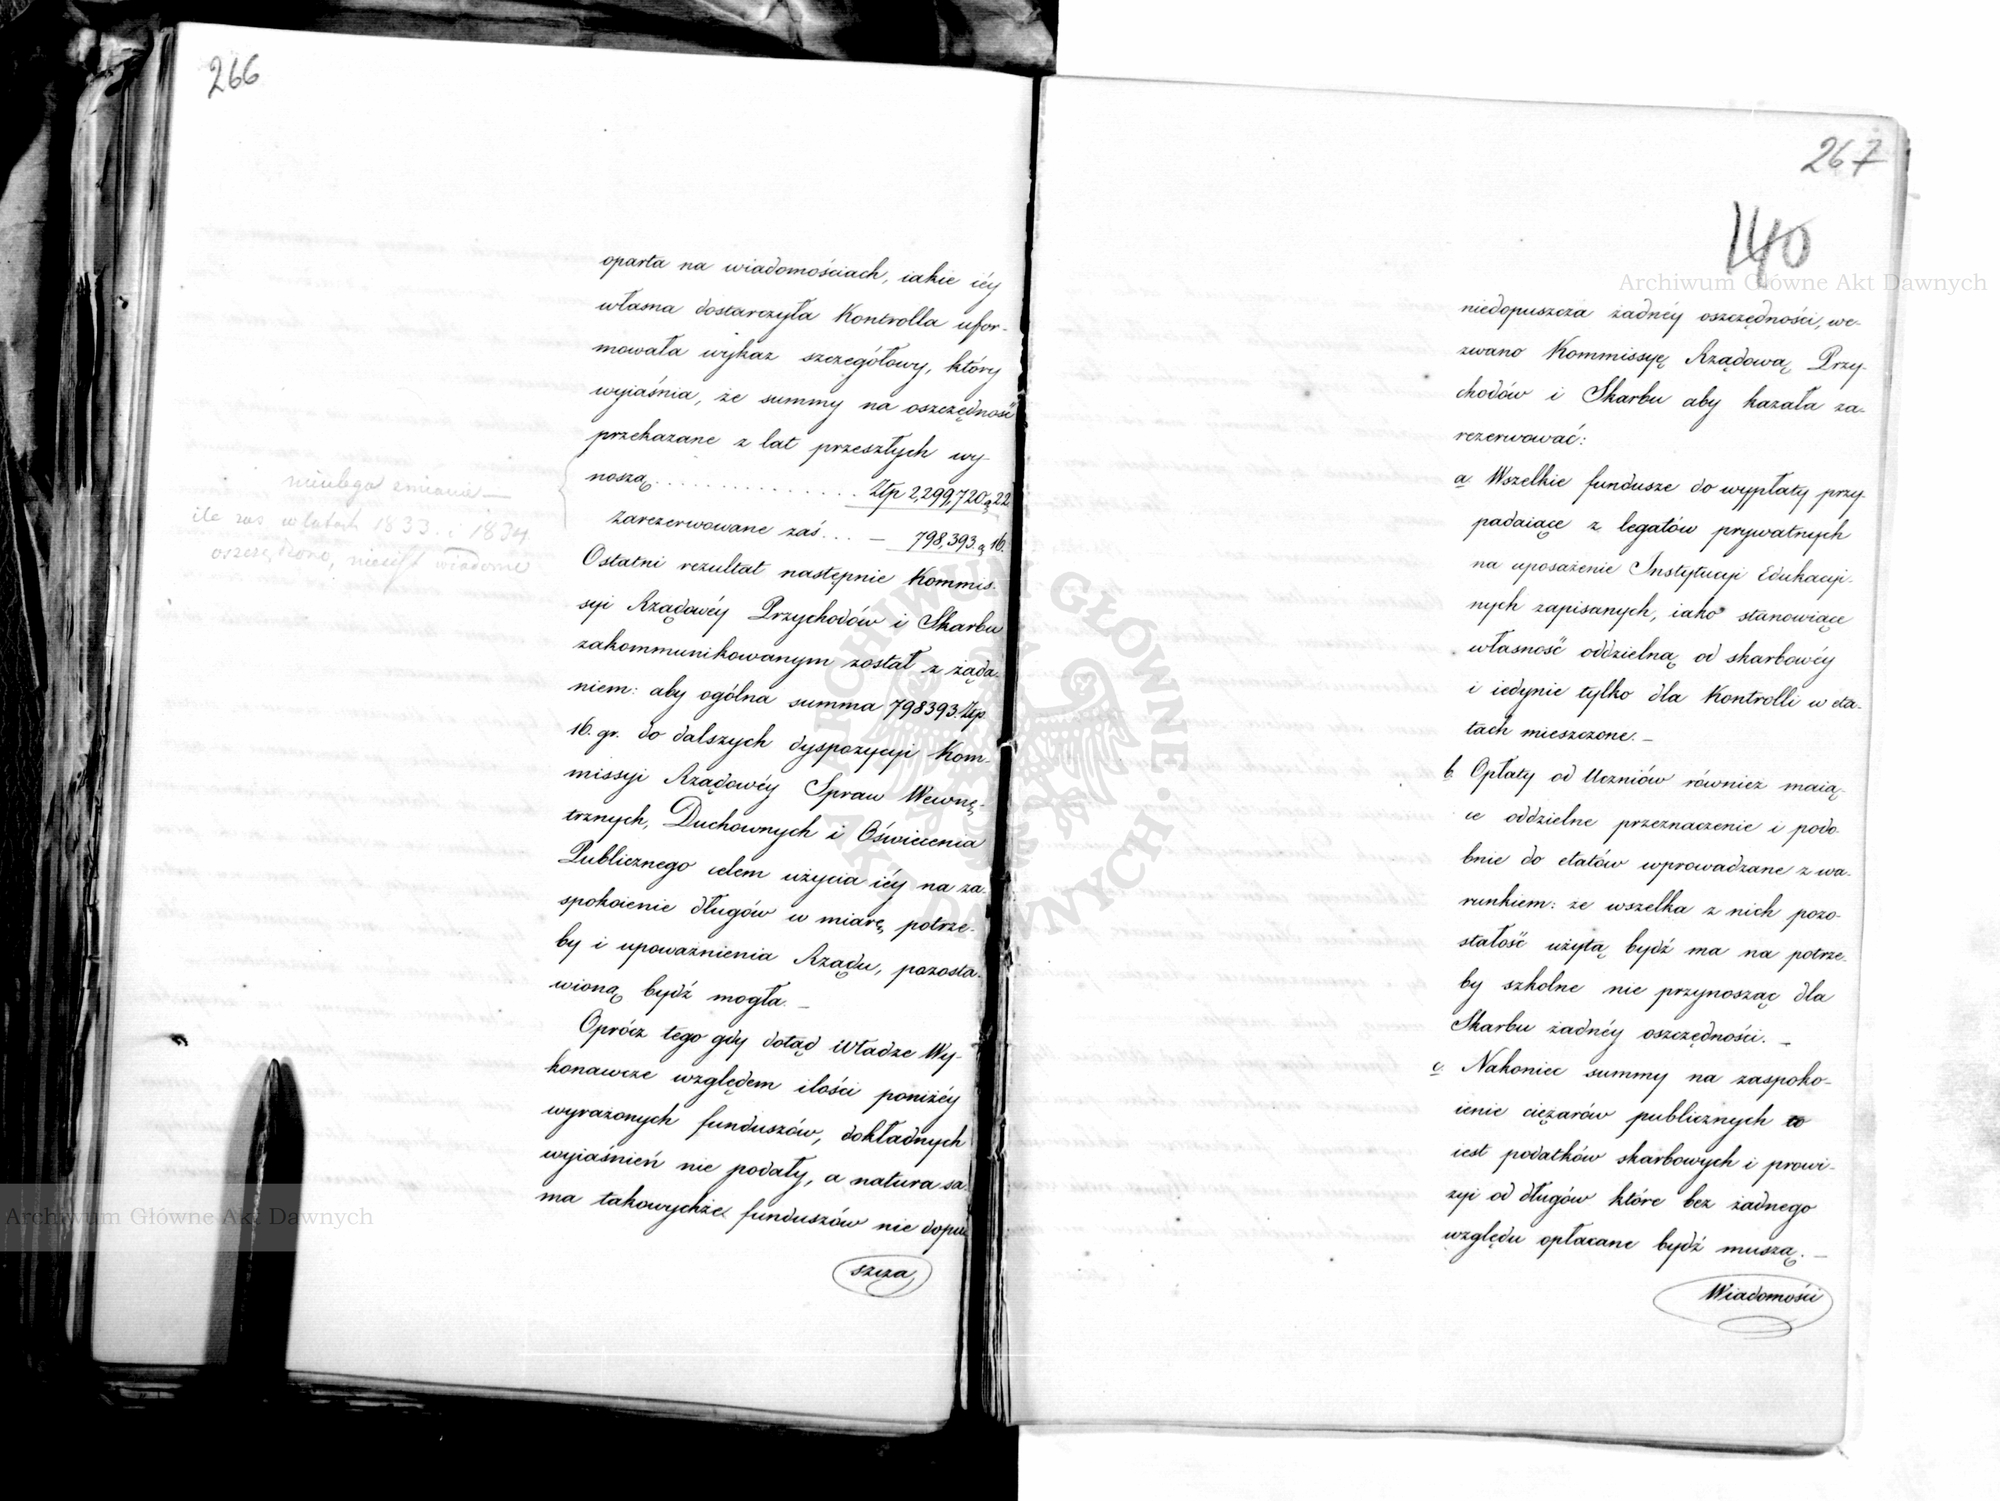 266
oparta na wiadomościach, iakie iéy
własna dostarczyła Kontrolla ufor-
mowała wykaz szczegółowy, który
wyiaśnia, że summy na oszczędność
przekazane z lat przeszłych wy-
noszą . . . . . . . . . . . . . . . Złp 2,299,720 g 22
Zarezerwowane zaś . . . — 798,393 g 16.
nieulega zmianie —
ile zaś w latach 1833. i 1834
oszczędzono, niejest wiadome
Ostatni rezultat następnie Kommis-
syi Rządowéy Przychodów i Skarbu
zakommunikowanym został z żąda-
niem: aby ogólna summa 798393. Złp
16. gr. do dalszych dyspozycyi Kom-
missyi Rządowéy Spraw Wewnę-
trznych, Duchownych i Oświecenia
Publicznego celem użycia iéy na za-
spokoienie długów w miarę potrze-
by i upoważnienia Rządu, pozosta-
wioną bydź mogła. —
Oprócz tego gdy dotąd Władze Wy-
konawcze względem ilości poniżéy
wyrażonych funduszów, dokładnych
wyiaśnień nie podały, a natura sa-
ma takowychże funduszów nie dopu
szcza
267
140
niedopuszcza żadnéy oszczędności, we-
zwano Kommissyę Rządową Przy-
chodów i Skarbu aby kazała za-
rezerwować:
a Wszelkie fundusze do wypłaty przy-
padaiące z legatów prywatnych
na uposażenie Instytucyi Edukacyi-
nych zapisanych, iako stanowiące
własność oddzielną od skarbowéy
i iedynie tylko dla Kontrolli w eta-
tach mieszczone. —
b. Opłaty od Uczniów również maią-
ce oddzielne przeznaczenie i podo-
bnie do etatów wprowadzane z wa-
runkiem: że wszelka z nich pozo-
stałość użytą bydź ma na potrze-
by szkolne nie przynosząc dla
Skarbu żadnéy oszczędności. —
c. Nakoniec summy na zaspoko-
ienie ciężarów publicznych to
iest podatków skarbowych i prowi-
zyi od długów które bez żadnego
względu opłacane bydź muszą. —
Wiadomości
Archiwum Główne Akt Dawnych
Archiwum Główne Akt Dawnych
ARCHIWUM GŁÓWNE AKT DAWNYCH